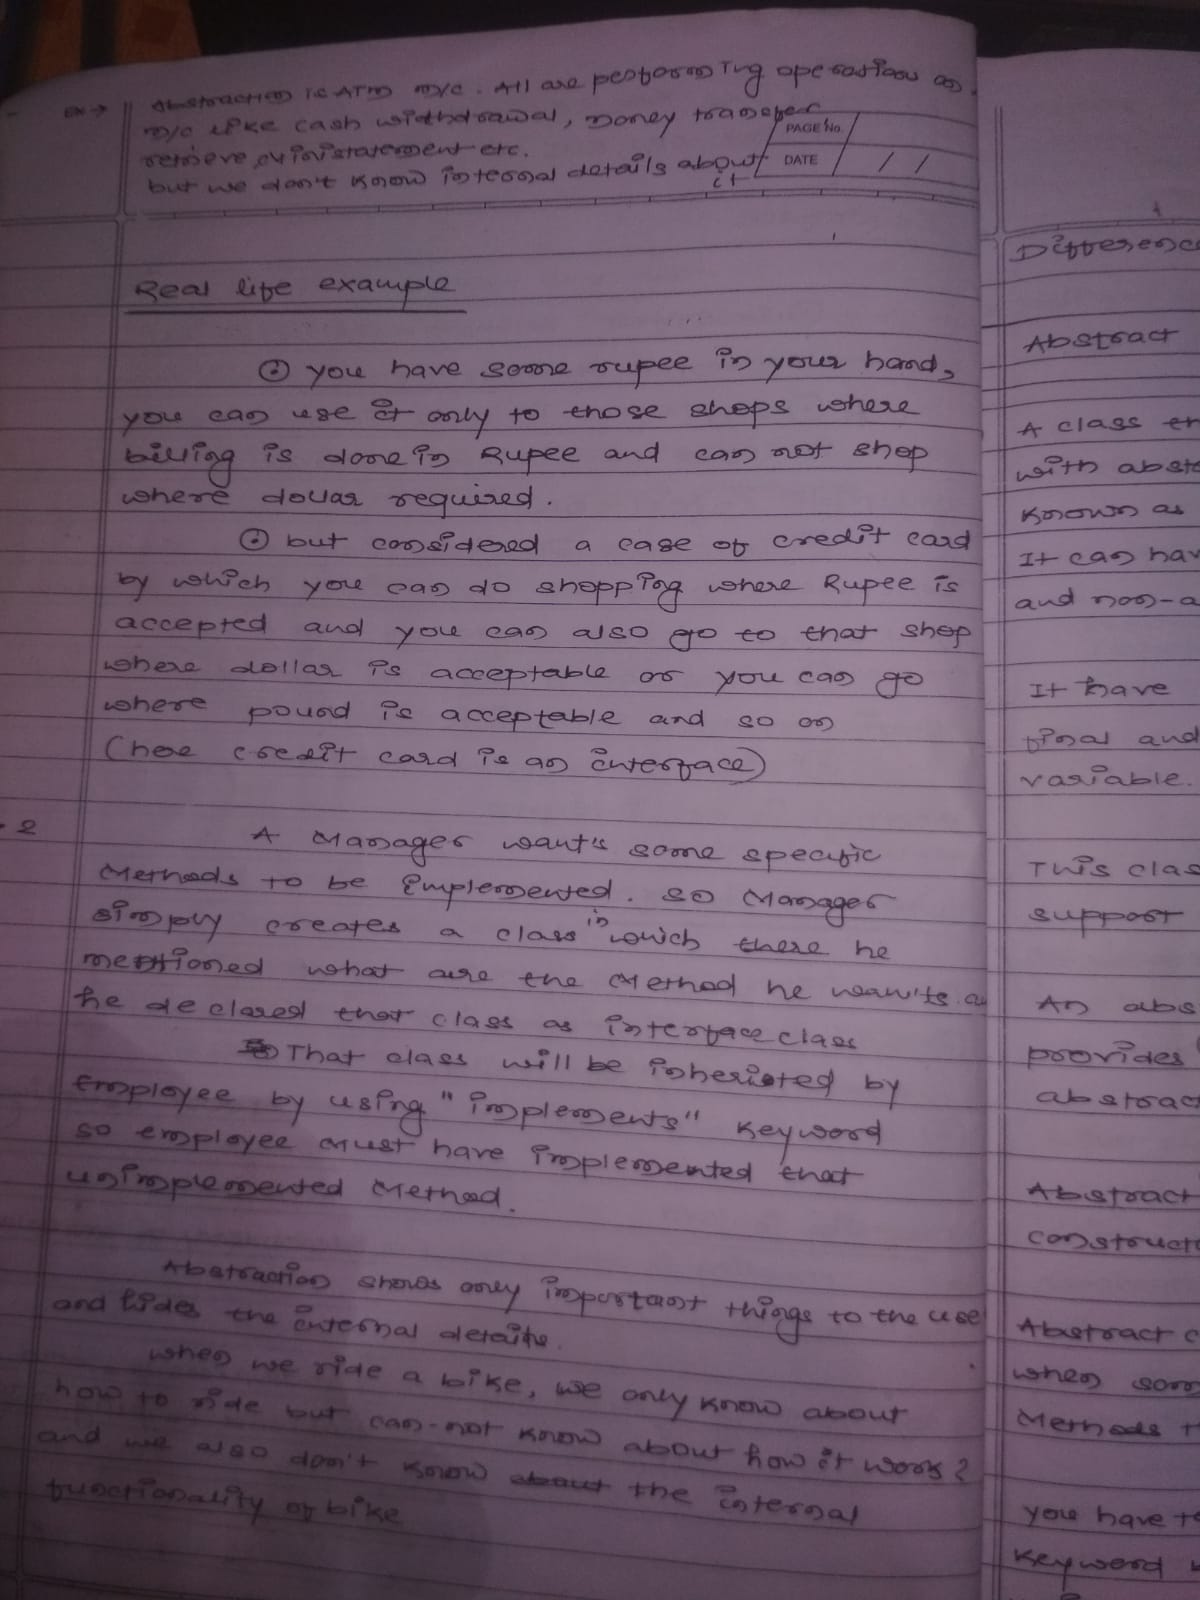 Ex →
Abstraction is ATM m/c. All are performing operations on
m/c like cash withdrawal, money transfer
retrieve ministatement etc.
but we don't know internal details about
it
PAGE No.
DATE / /
Real life example
you have some rupee in your hand,
you can use it only to those shops where
billing is done in Rupee and can not shop
where dollar required.
but considered a case of credit card
by which you can do shopping where Rupee is
accepted and you can also go to that shop
where dollar is acceptable or you can go
where pound is acceptable and so on
(here credit card is an interface)
2
A Manager want's some specific
Methods to be implemented. so Manager
in
simply creates a class which there he
mentioned what are the Method he wants
he declared that class as interface class
That class will be inherited by
Employee by using "implements" keyword
so employee must have implemented that
unimplemented Method.
Abstraction shows only important things to the use
and hides the internal details.
when we ride a bike, we only know about
how to ride but can-not know about how it work?
and we also don't know about the internal
functionality of bike
Difference
Abstract
A class
with
Known as
It can hav
and non-a
It have
final and
variable.
This clas
support
An abs
provides
abstrac
Abstract
construct
Abstract c
when som
Methods t
you have to
Keyword